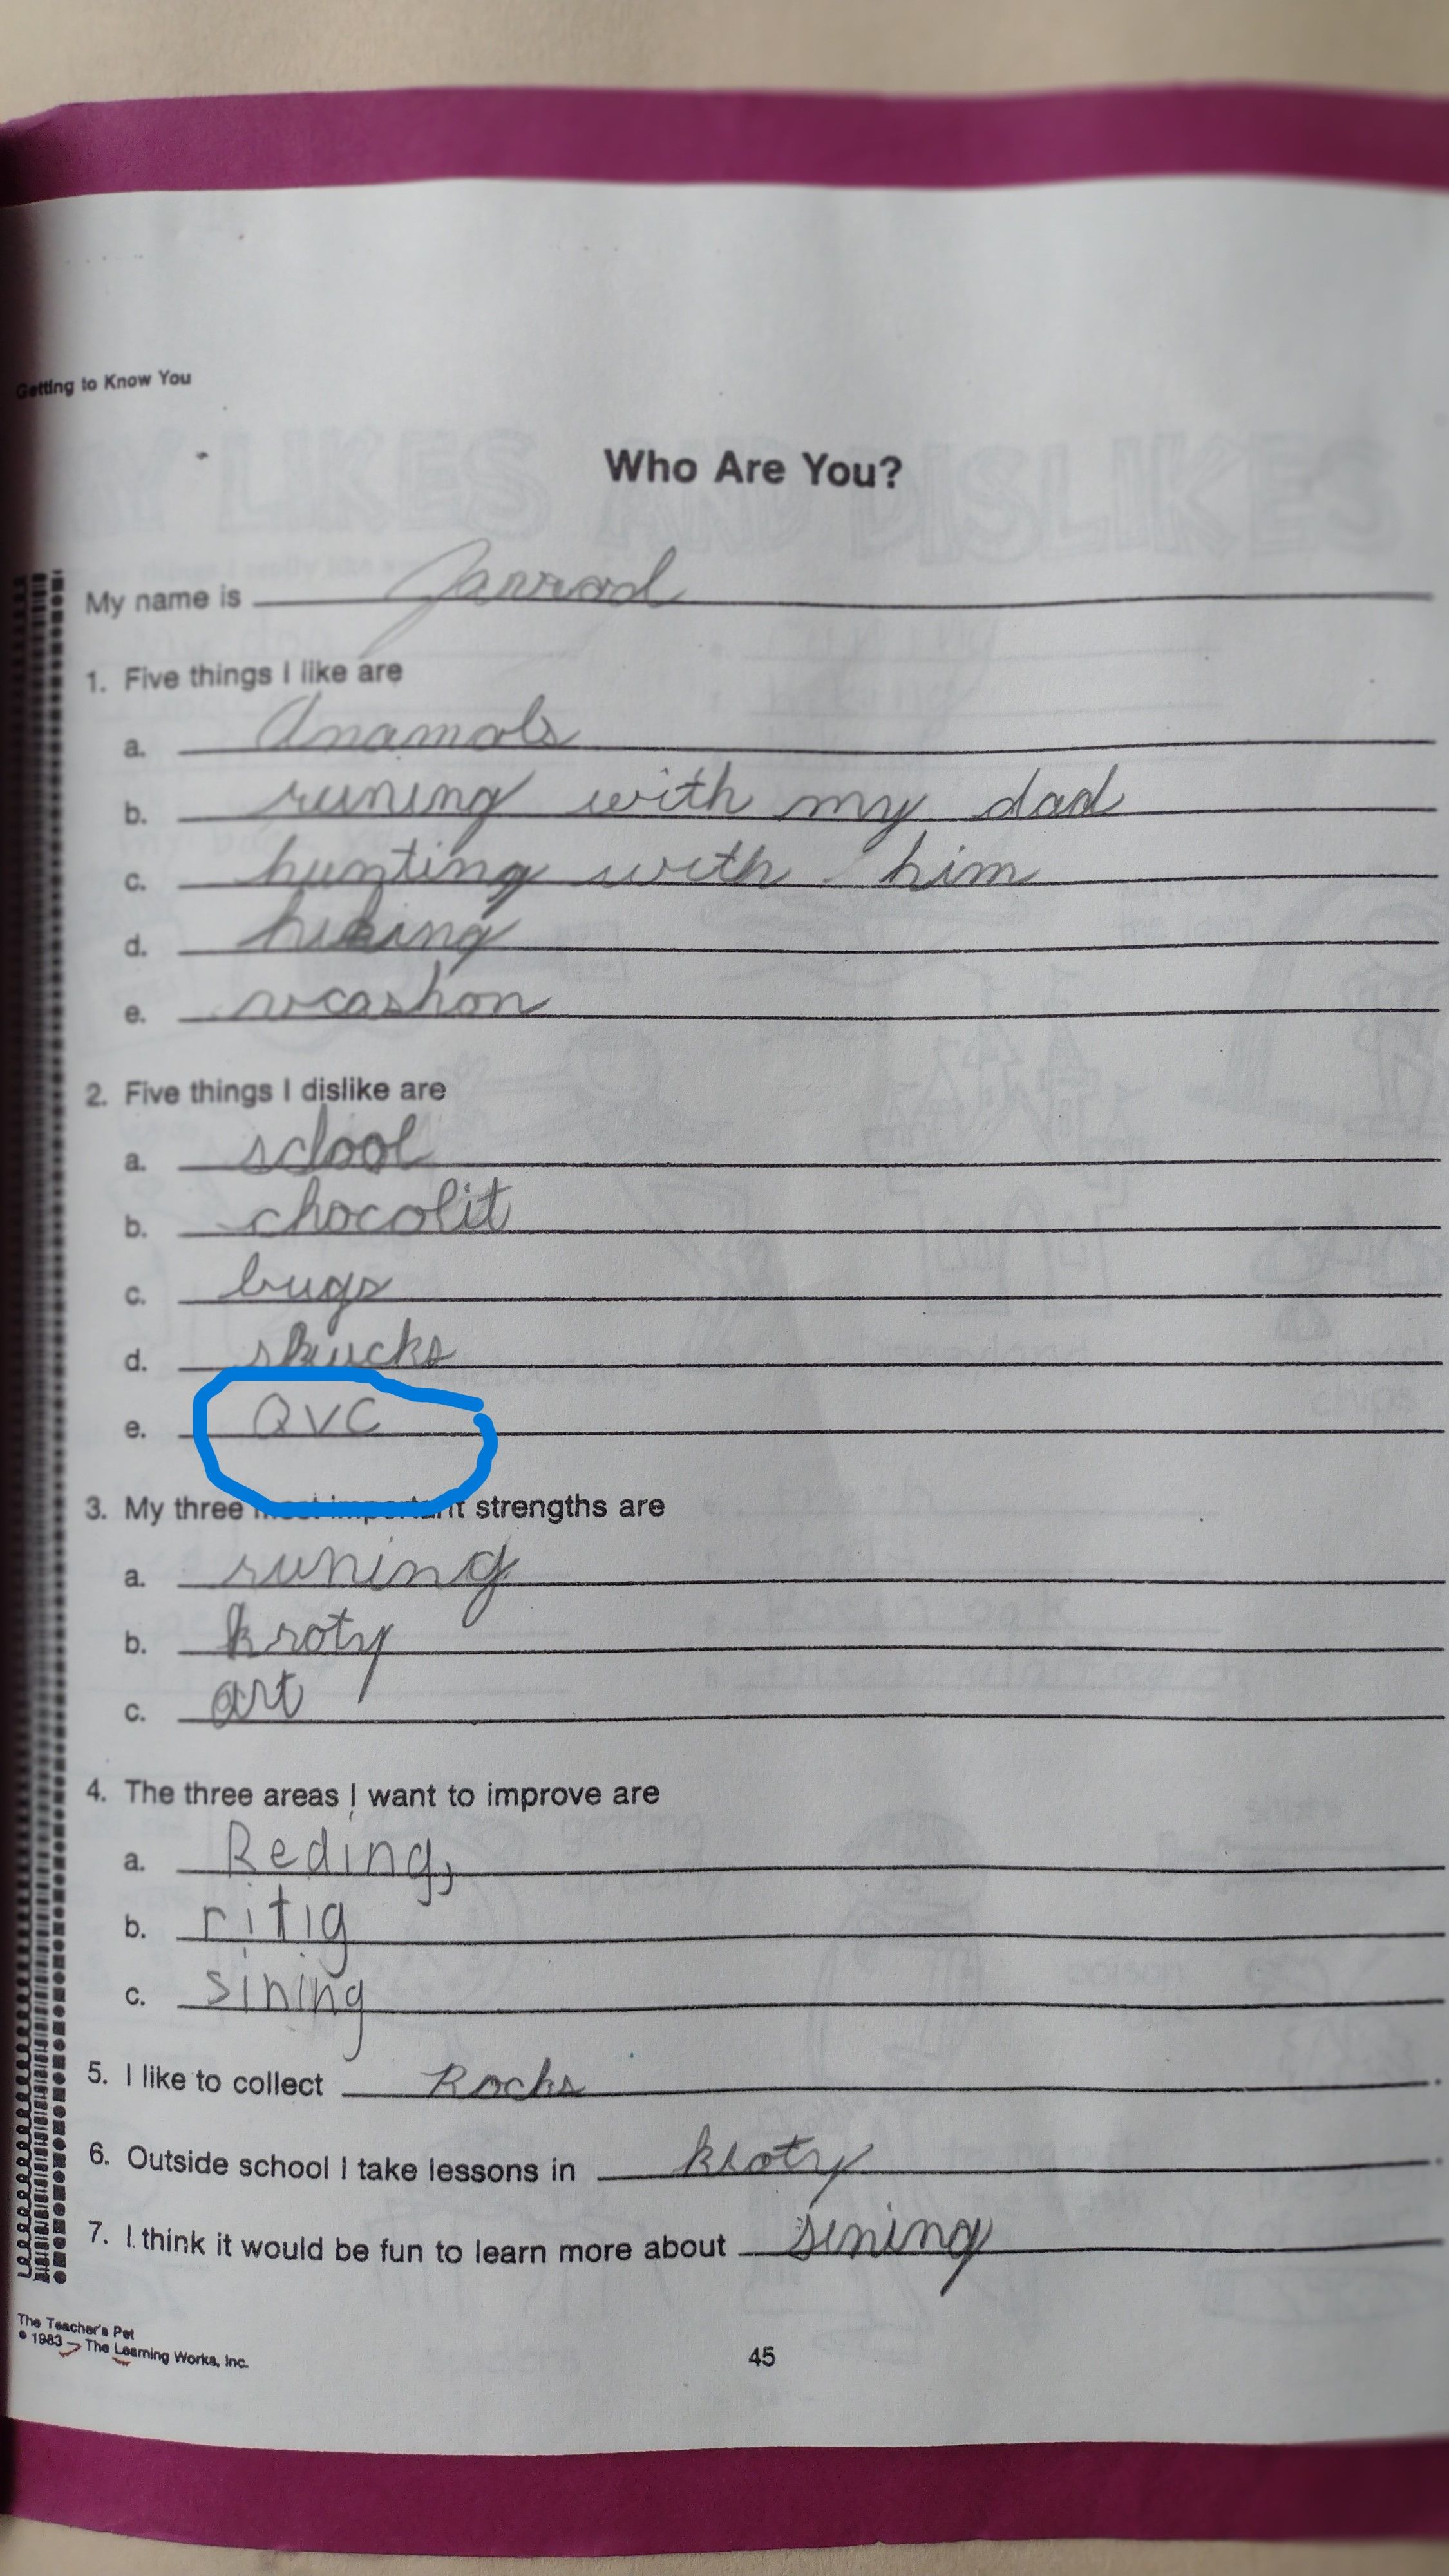 Getting to Know You
Who Are You?
My name is Jarrod
1. Five things I like are
a. Anamals
b. runing with my dad
c. hunting with him
d. hiking
e. vcashon
2. Five things I dislike are
a. school
b. chocolit
c. bugs
d.
e. QVC
3. My three most important strengths are
a. runing
b. kroty
c. art
4. The three areas I want to improve are
a. Reding,
b. ritig
c. sining
5. I like to collect Rocks.
6. Outside school I take lessons in kroty.
7. I think it would be fun to learn more about sining
The Teacher's Pet
© 1983 — The Learning Works, Inc.
45